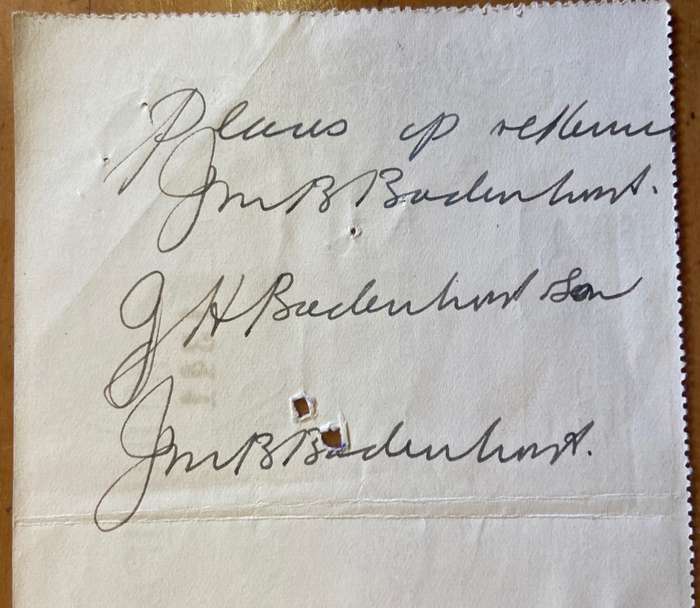 Plaas op rekening
JMB Badenhorst.
G H Badenhorst Son
JMB Badenhorst.